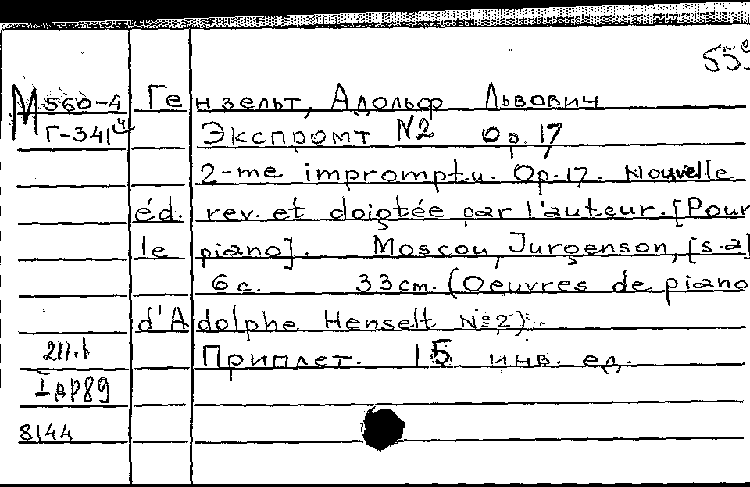 М 560-4 Гензельт, Адольф Львович
Г-341 Экспромт №2 Op. 17
2-me impromptu. Op.17. Nouvelle
éd. rev. et doigtée par l'auteur. [Pour
le piano]. Moscou, Jurgenson, [s.a]
6 с. 33 cm. (Oeuvres de piano
d'Adolphe Henselt №2).
Приплет. 15 инв. ед.
8144